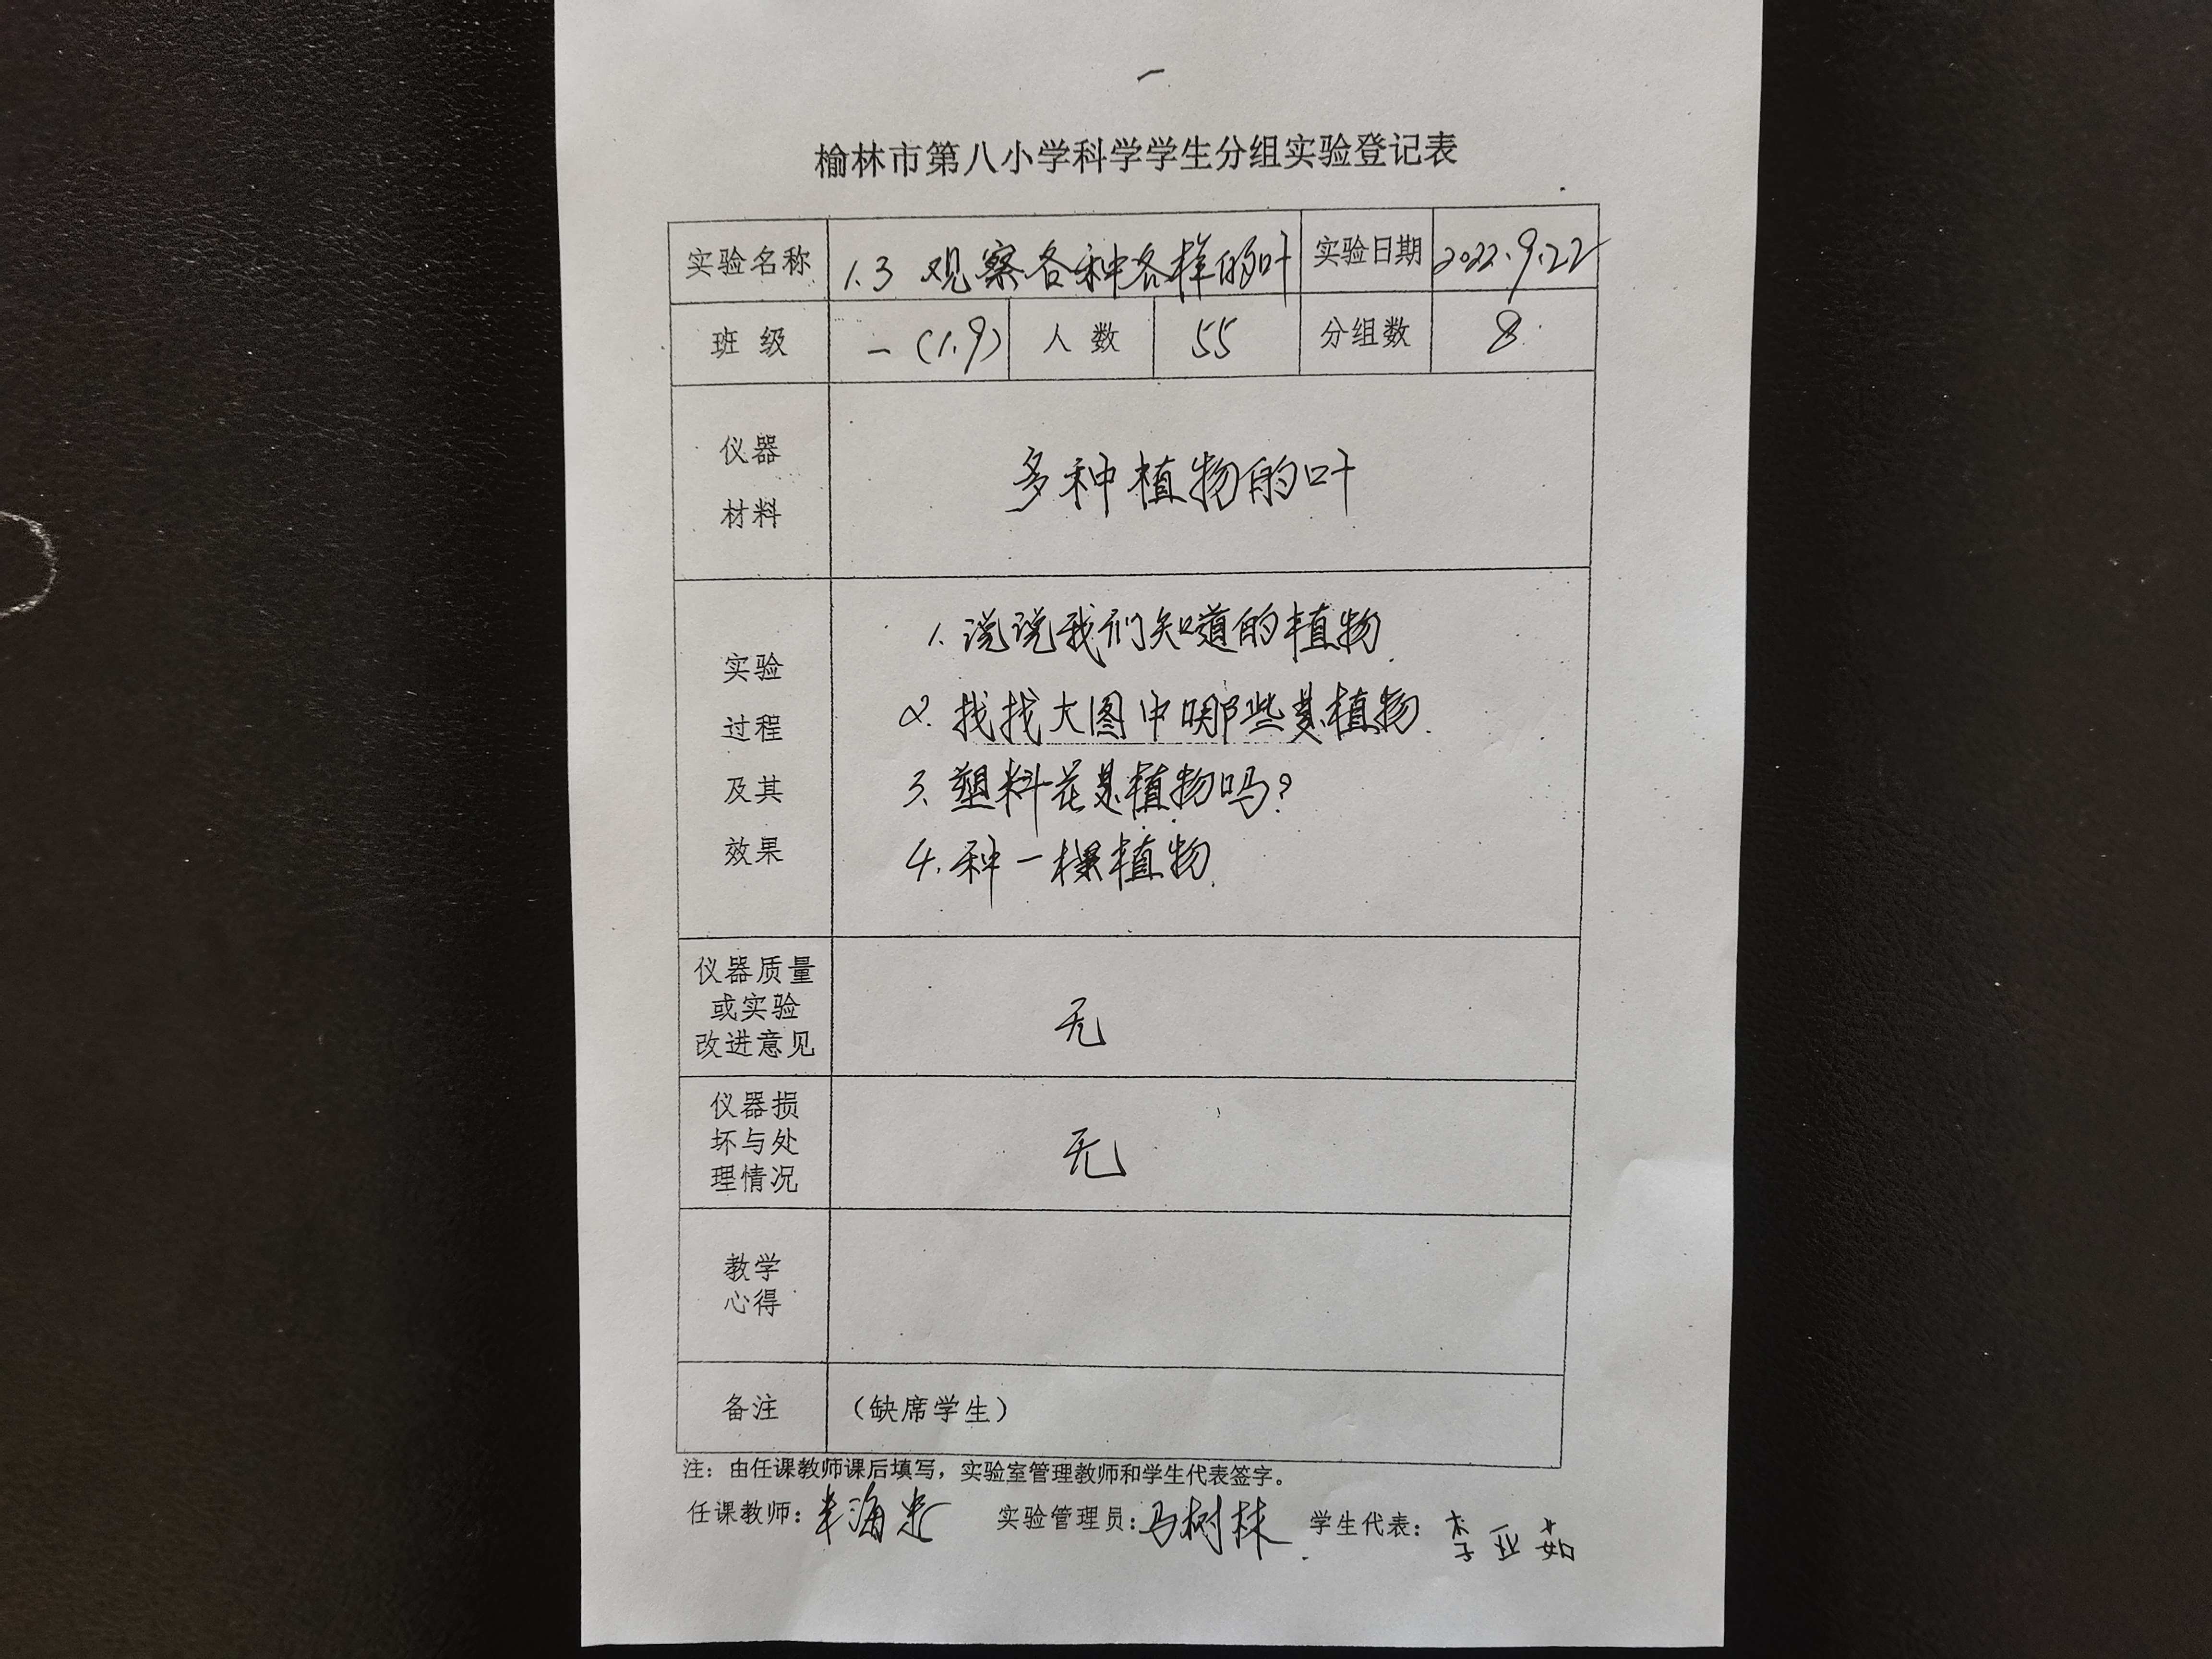 一
榆林市第八小学科学学生分组实验登记表
实验名称 1.3 观察各种各样的叶 实验日期 2022.9.22
班 级 一(1.9) 人 数 55 分组数 8
仪器
材料
多种植物的叶
1. 说说我们知道的植物.
实验
2. 找找大图中哪些是植物.
过程
3. 塑料花是植物吗?
及其
4. 种一棵植物.
效果
仪器质量
或实验
改进意见
无
仪器损
坏与处
理情况
无
教学
心得
备注 (缺席学生)
注: 由任课教师课后填写, 实验室管理教师和学生代表签字。
任课教师: 实验管理员: 马树林 学生代表: 李亚茹